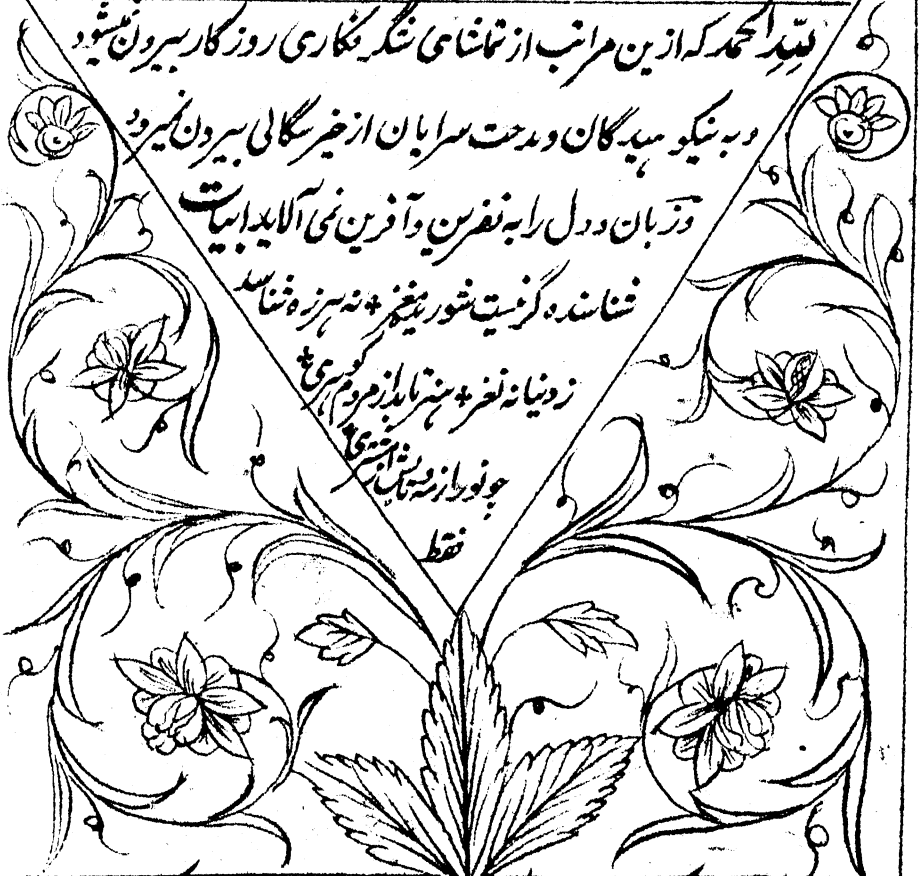 للّه الحمد که ازین مراتب از تماشای شگرفکاری روزگار بیرون نمیشود
و به نیکوهیدگان و مدحت سرایان از خیرسگالی بیرون نمیرود
و زبان و دل را به نفرین و آفرین نمی آلاید ابیات
شناسنده گر نیست شوریده مغز + نه بهرزه شناسد
ز دنیا نه نغز + هنر تابد از مردم گوهری +
چو نور از مه و تابش از مشتری
فقط